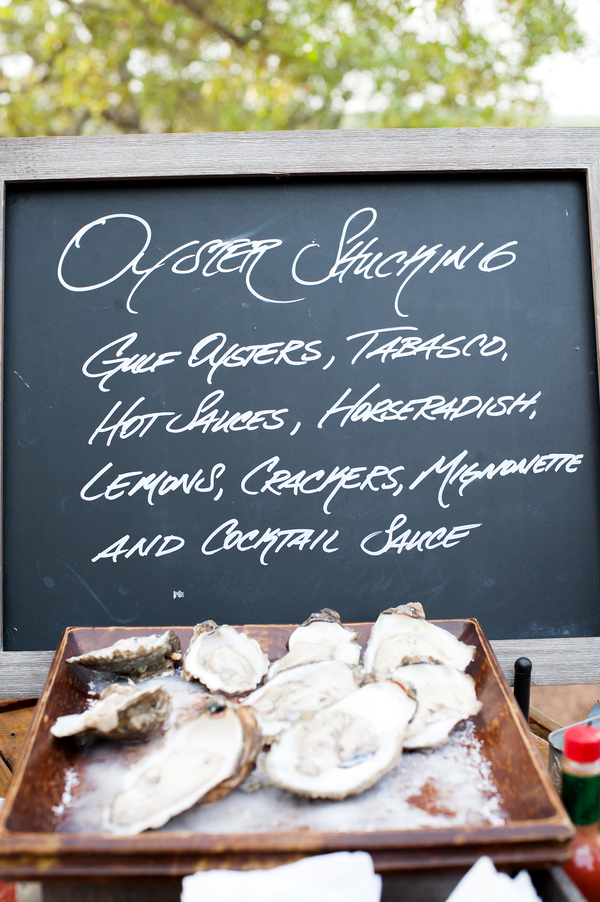 Oyster Shucking
Gulf Oysters, Tabasco,
Hot Sauces, Horseradish,
Lemons, Crackers, Mignonette
and Cocktail Sauce